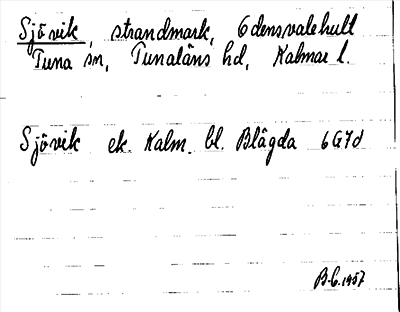 Sjövik, strandmark, Odensvalehult
Tuna sn, Tunaläns hd, Kalmar l.
Sjövik ek. Kalm. bl. Blågda 6G7d
B.C. 1957